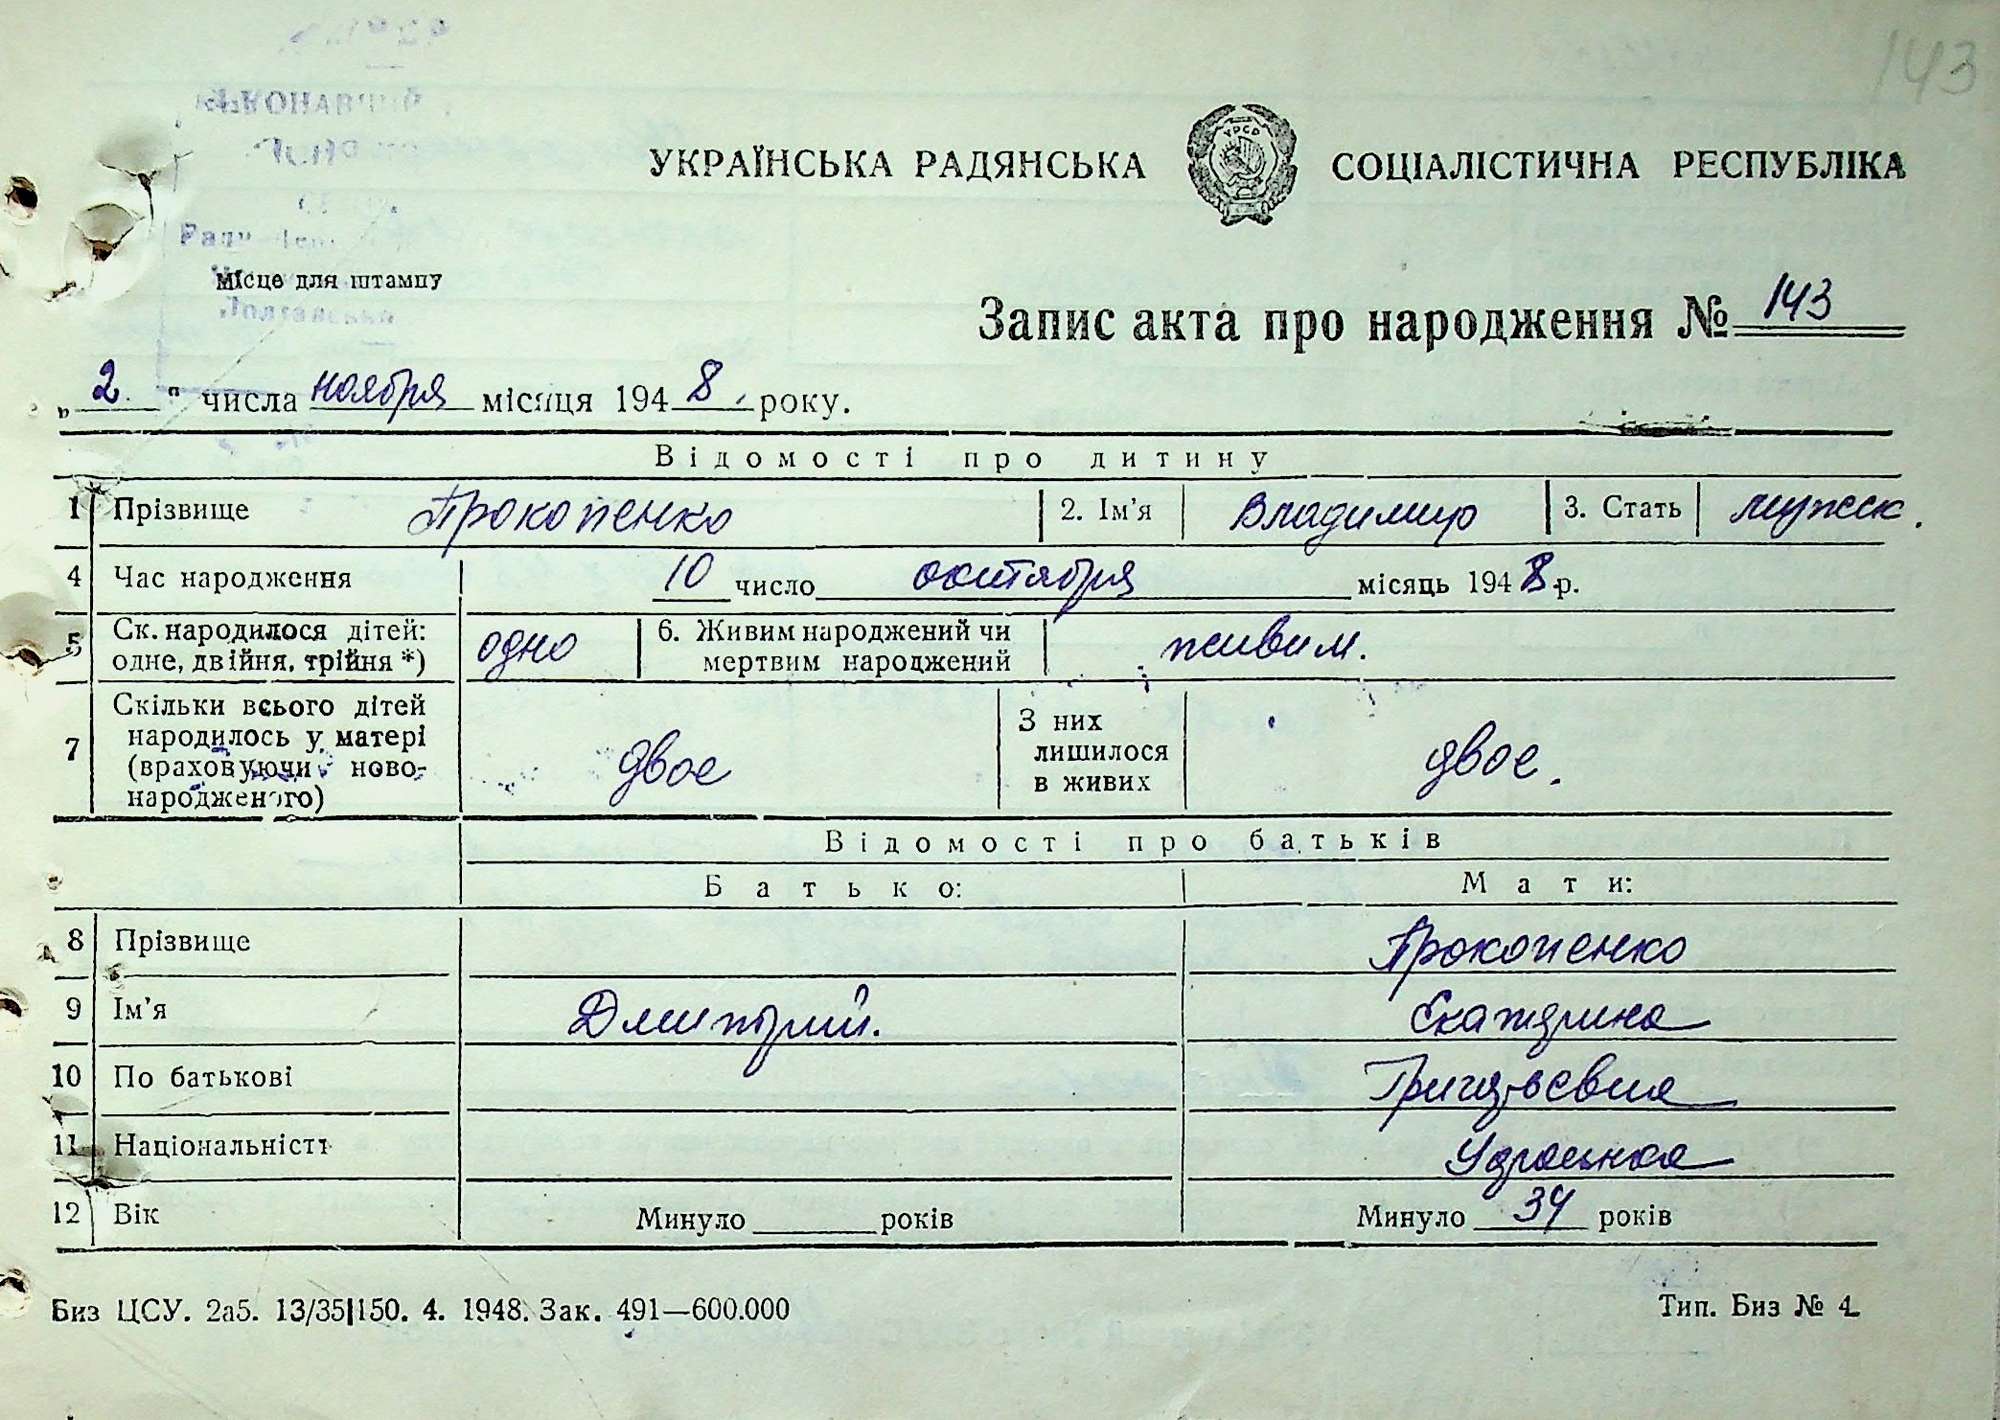 143
УКРАЇНСЬКА РАДЯНСЬКА СОЦІАЛІСТИЧНА РЕСПУБЛІКА
УРСР
Місце для штампу
Запис акта про народження № 143
„2" числа ноября місяця 1948 року.
Відомості про дитину
1 Прізвище Прокопенко 2. Ім'я Владимир 3. Стать мужск.
4 Час народження 10 число октября місяць 1948 р.
5 Ск. народилося дітей: одне, двійня, трійня *) одно 6. Живим народжений чи мертвим народжений живим.
7 Скільки всього дітей народилось у матері (враховуючи ново-народженого) двое З них лишилося в живих двое.
Відомості про батьків
Батько: Мати:
8 Прізвище Прокопенко
9 Ім'я Дмитрий. Екатерина
10 По батькові Григорьевна
11 Національність Украинка
12 Вік Минуло років Минуло 34 років
Биз ЦСУ. 2а5. 13/35|150. 4. 1948. Зак. 491—600.000 Тип. Биз № 4